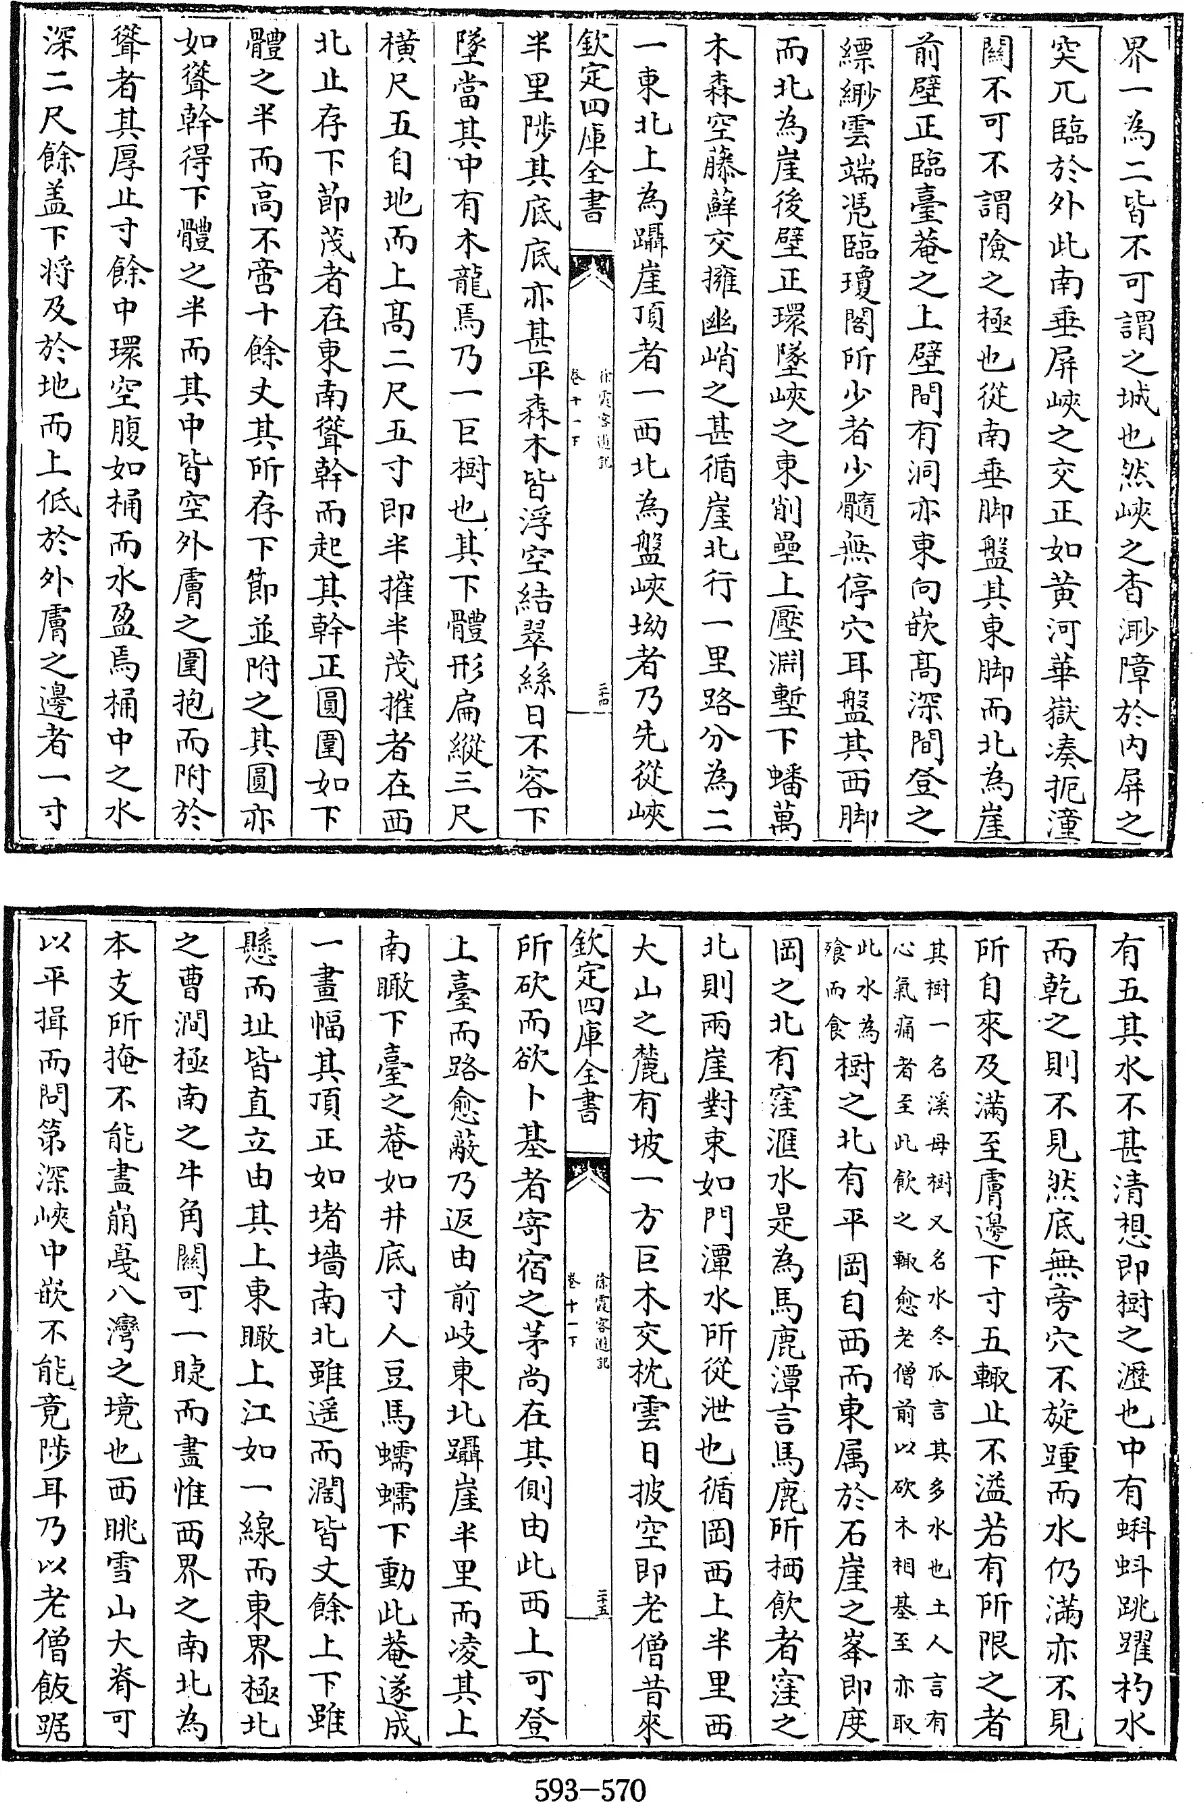 界一為二皆不可謂之城也然峽之杳渺障於内屏之
突兀臨於外此南垂屏峽之交正如黄河華嶽湊扼潼
關不可不謂險之極也從南垂脚盤其東脚而北為崖
前壁正臨臺菴之上壁間有洞亦東向嵌高深間登之
縹緲雲端凭臨瓊閣所少者少髓無停穴耳盤其西脚
而北為崖後壁正環墜峽之東削壘上壓淵塹下蟠萬
木森空藤蘚交擁幽峭之甚循崖北行一里路分為二
一東北上為躡崖頂者一西北為盤峽坳者乃先從峽
欽定四庫全書
徐霞客遊記
卷十一下
三十四
半里陟其底底亦甚平森木皆浮空結翠絲日不容下
墜當其中有木龍焉乃一巨樹也其下體形扁縱三尺
横尺五自地而上高二尺五寸即半摧半茂摧者在西
北止存下節茂者在東南聳幹而起其幹正圓圍如下
體之半而高不啻十餘丈其所存下節並附之其圓亦
如聳幹得下體之半而其中皆空外膚之圍抱而附於
聳者其厚止寸餘中環空腹如桶而水盈焉桶中之水
深二尺餘盖下将及於地而上低於外膚之邊者一寸
有五其水不甚清想即樹之瀝也中有蝌蚪跳躍杓水
而乾之則不見然底無旁穴不旋踵而水仍滿亦不見
所自來及滿至膚邊下寸五輒止不溢若有所限之者
其樹一名溪母樹又名水冬瓜言其多水也土人言有
心氣痛者至此飲之輒愈老僧前以砍木相基至亦取
此水為
飱而食
樹之北有平岡自西而東属於石崖之峯即度
岡之北有窪滙水是為馬鹿潭言馬鹿所栖飲者窪之
北則兩崖對束如門潭水所從泄也循岡西上半里西
大山之麓有坡一方巨木交枕雲日披空即老僧昔來
欽定四庫全書
徐霞客遊記
卷十一下
三十五
所砍而欲卜基者寄宿之茅尚在其側由此西上可登
上臺而路愈蔽乃返由前岐東北躡崖半里而凌其上
南瞰下臺之菴如井底寸人豆馬蠕蠕下動此菴遂成
一畫幅其頂正如堵墻南北雖遥而濶皆丈餘上下雖
懸而址皆直立由其上東瞰上江如一線而東界極北
之曹澗極南之牛角關可一睫而盡惟西界之南北為
本支所掩不能盡崩戞八灣之境也西眺雪山大脊可
以平揖而問第深峽中嵌不能竟陟耳乃以老僧飯踞
593-570